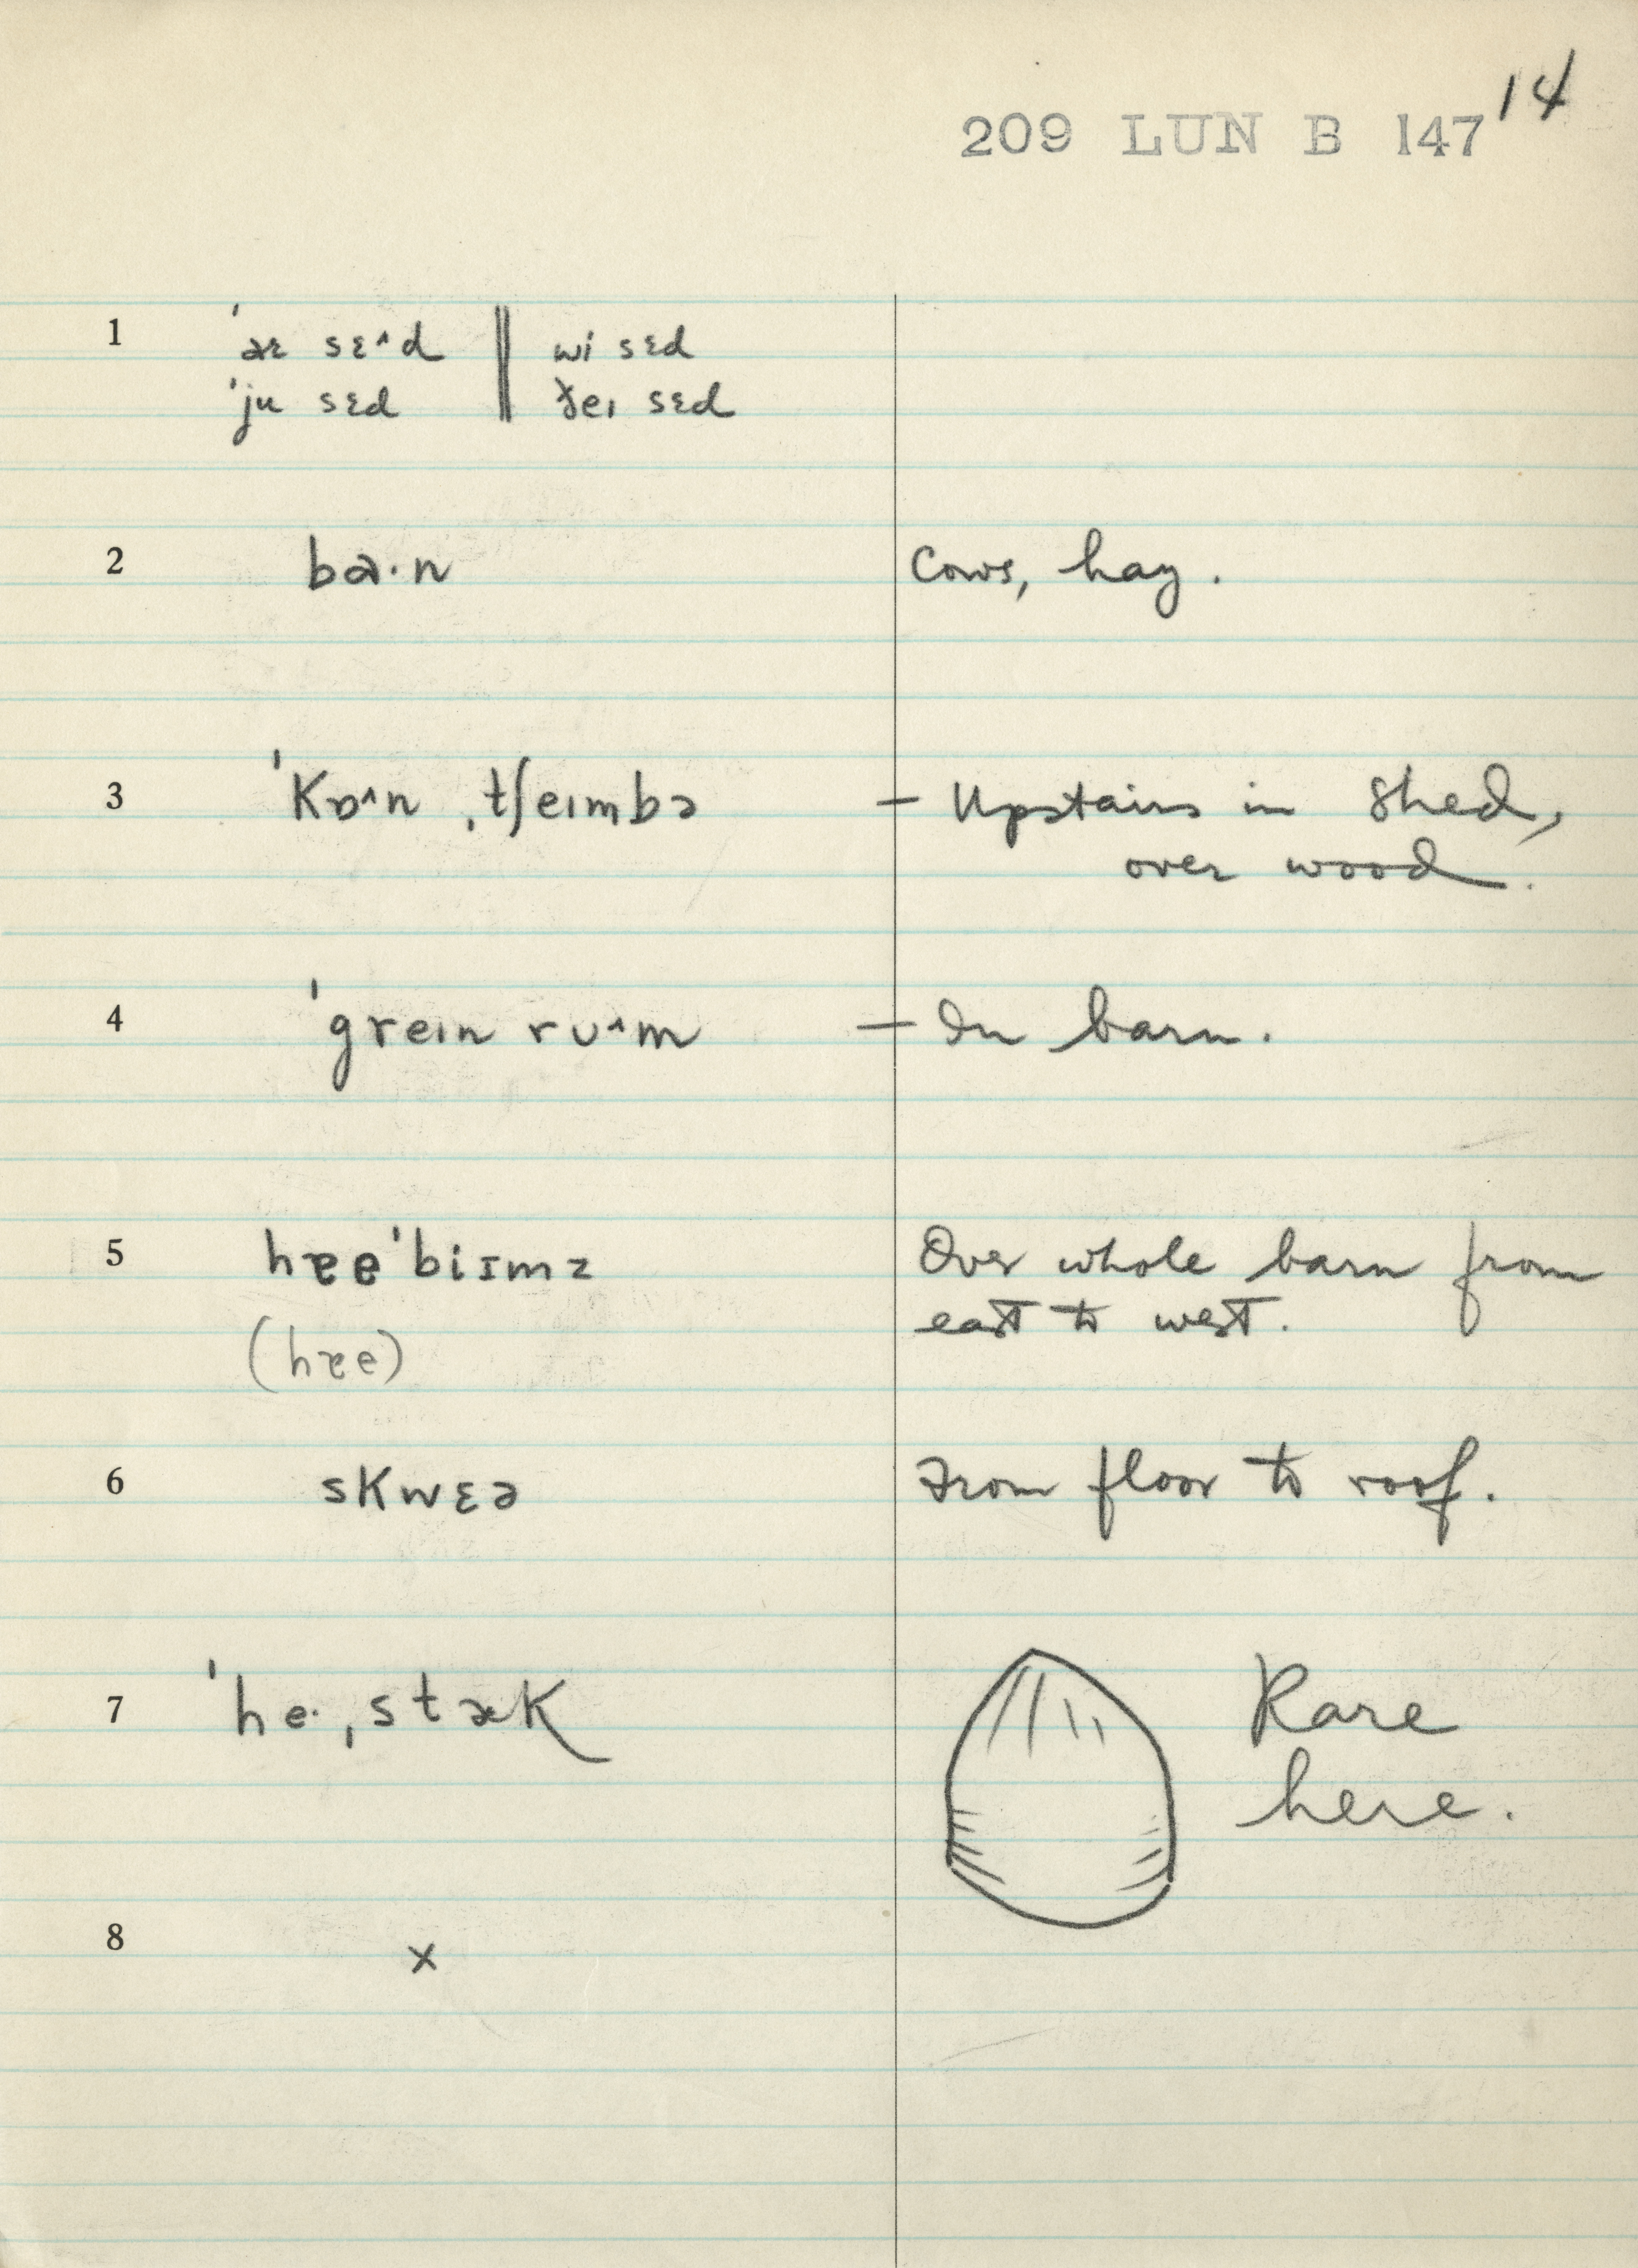 14
209 LUN B 147
1 ˈaɪ sɛ^d ‖ wi sɛd
ˈju sɛd ‖ ðeɪ sɛd
2 ba·n Cows, hay.
3 ˈKɒ^n ˌtʃeɪmbə — Upstairs in shed,
over wood.
4 ˈgreɪn rʊ^m — In barn.
5 hɐe ˈbiɪmz Over whole barn from
east to west.
(hɐe)
6 sKwɛə From floor to roof.
7 ˈhe· ˌstæK Rare
here.
8 x